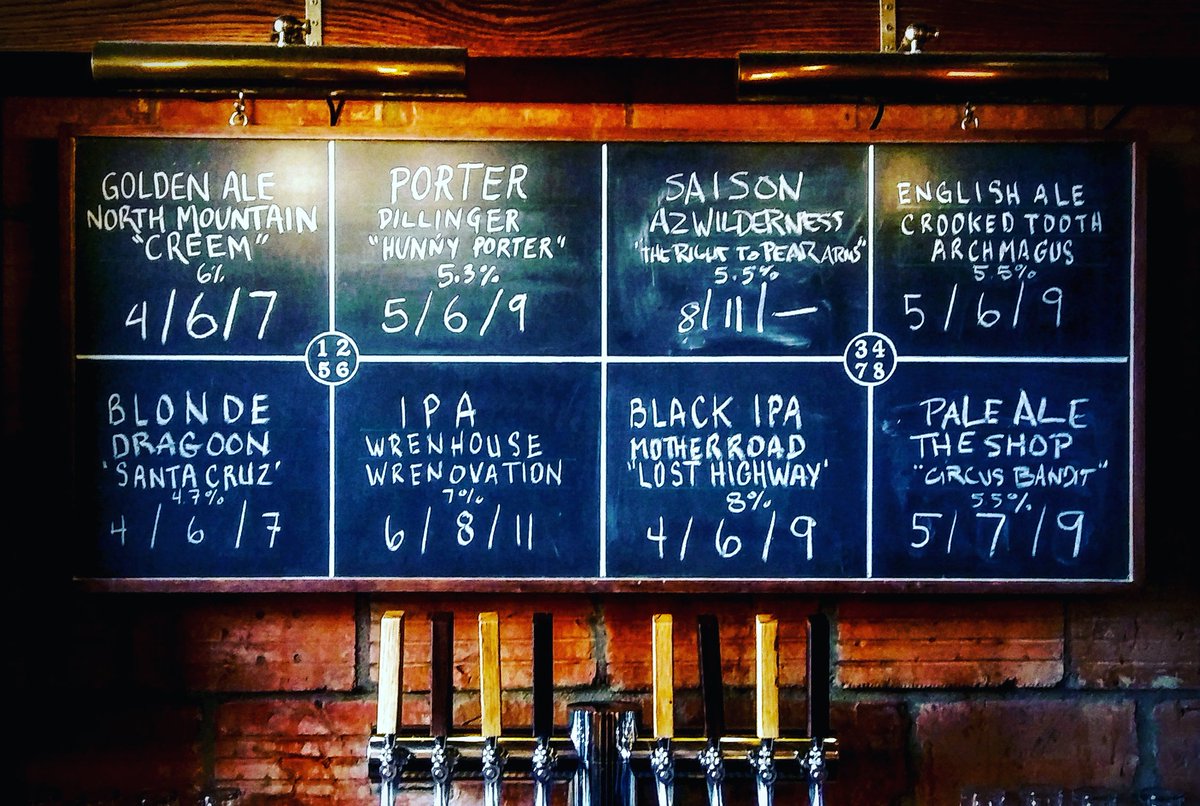 GOLDEN ALE
NORTH MOUNTAIN
"CREEM"
6%
4/6/7
PORTER
DILLINGER
"HUNNY PORTER"
5.3%
5/6/9
SAISON
AZ WILDERNESS
"THE RIGHT TO PEAR ARMS"
5.5%
8/11/—
ENGLISH ALE
CROOKED TOOTH
ARCHMAGUS
5.5%
5/6/9
1 2
5 6
3 4
7 8
BLONDE
DRAGOON
'SANTA CRUZ'
4.7%
4/6/7
IPA
WRENHOUSE
WRENOVATION
7%
6/8/11
BLACK IPA
MOTHER ROAD
"LOST HIGHWAY'
8%
4/6/9
PALE ALE
THE SHOP
"CIRCUS BANDIT"
5.5%
5/7/9